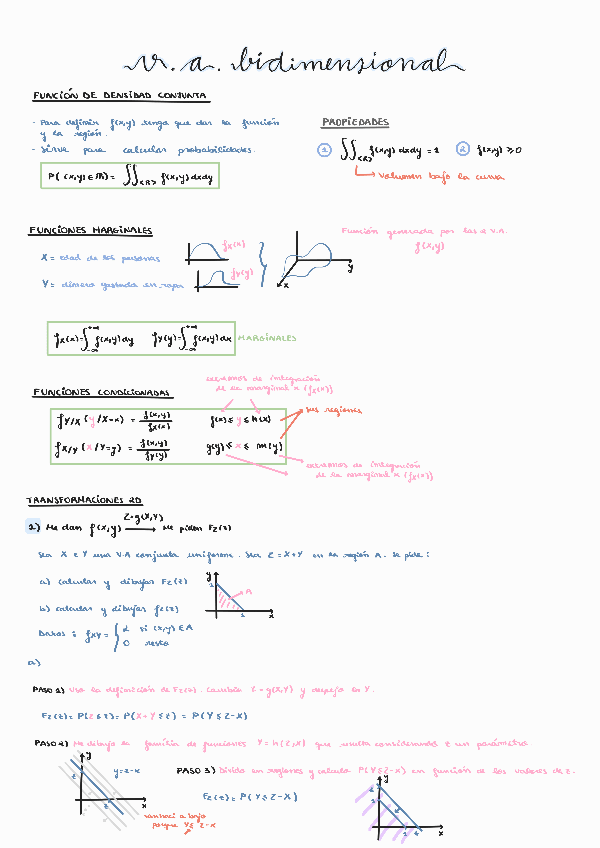 v. a. bidimensional
FUNCIÓN DE DENSIDAD CONJUNTA
- Para definir f(x,y) tengo que dar la función
y la región.
- Sirve para calcular probabilidades.
P( (x,y) ∈ R)= ∬<R> f(x,y) dxdy
PROPIEDADES
1 ∬<R> f(x,y) dxdy = 1 2 f(x,y) ≥ 0
Volumen bajo la curva
FUNCIONES MARGINALES
X = edad de las personas
Y = dinero gastado en ropa
fx(x)
fy(y)
y
x
Función generada por las 2 V.A.
f(x,y)
fx(x)=∫-∞+∞ f(x,y) dy fy(y)=∫-∞+∞ f(x,y) dx MARGINALES
FUNCIONES CONDICIONADAS
extremos de integración
de la marginal x (fx(x))
fY/X (y/X=x) = f(x,y)/fx(x) f(x) ≤ y ≤ h(x)
sus regiones
fX/Y (x/Y=y) = f(x,y)/fy(y) g(y) ≤ x ≤ m(y)
extremos de integración
de la marginal x (fx(x))
TRANSFORMACIONES 2D
1) Me dan f(x,y) Z=g(X,Y) Me piden Fz(z)
Sea X e Y una V.A conjunta uniforme. Sea Z = X+Y en la región A. Se pide:
a) calcular y dibujar Fz(z)
b) calcular y dibujar fz(z)
Datos: fXY = { 2 si (x,y) ∈ A
0 resto
y
A
x
a)
PASO 1) Uso la definición de Fz(z). Cambio Z = g(X,Y) y despejo en Y.
Fz(z) = P(Z≤z) = P(X+Y≤z) = P(Y≤Z-X)
PASO 2) Me dibujo la familia de funciones Y = h(Z,X) que resulta considerando z un parámetro
y
y=z-x
z
x
hacia abajo
porque Y≤ Z-X
PASO 3) Divido en regiones y calculo P(Y≤Z-X) en función de los valores de z.
Fz(z) = P(Y≤Z-X)
y
x